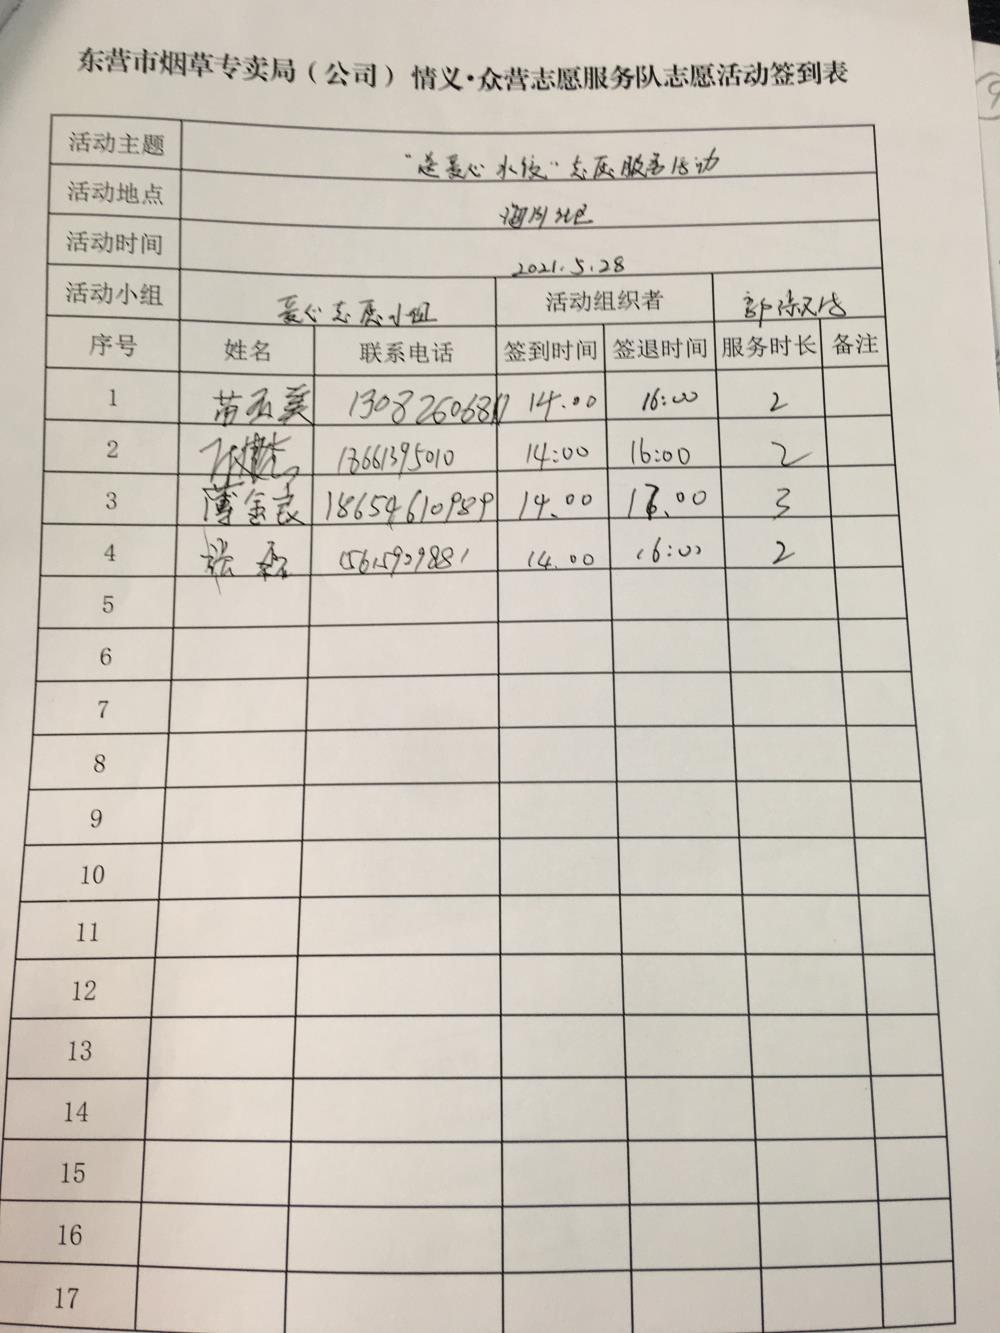 东营市烟草专卖局（公司）情义·众营志愿服务队志愿活动签到表
活动主题 "送爱心水饺"志愿服务活动
活动地点
活动时间 2021.5.28
活动小组 爱心志愿小组 活动组织者
序号 姓名 联系电话 签到时间 签退时间 服务时长 备注
1 苗玉美 14.00 16:00 2
2 18661395010 14:00 16:00 2
3 薄金良 18654610989 14.00 3
4 张磊 15615909881 14.00 16:00 2
5
6
7
8
9
10
11
12
13
14
15
16
17